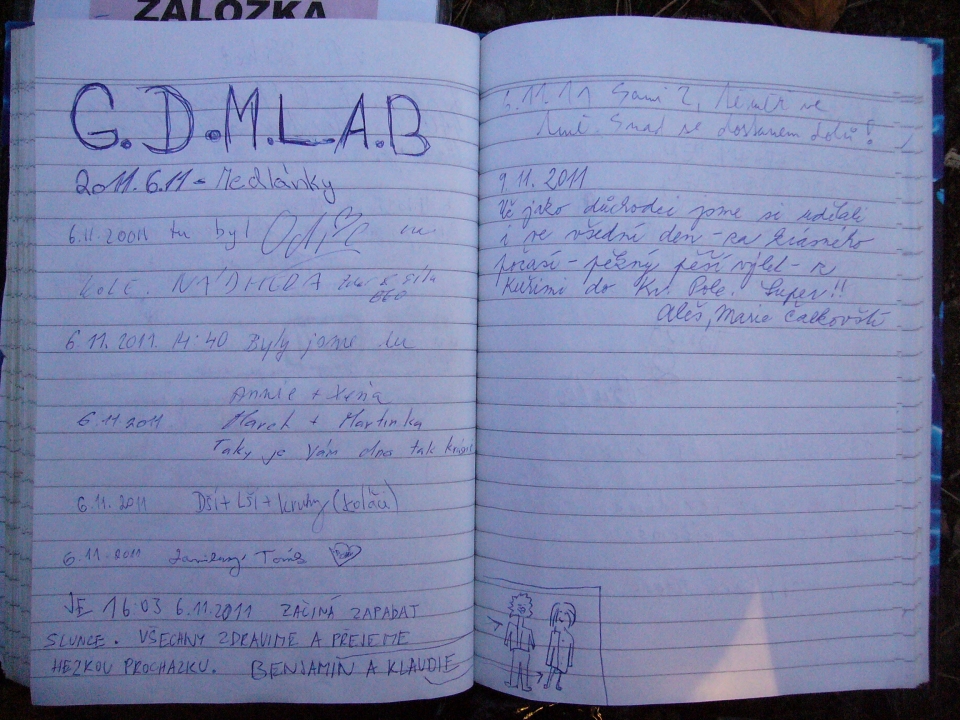 ZÁLOŽKA
G.D.M.L.A.B
2011.6.11 - Medlánky
6.11.2001 tu byl
KOLE. NÁDHERA
6.11.2011. 14:40 Byly jsme tu
Annie + Xenia
6.11.2011 Marek + Martinka
Taky je Vám dnes tak krásně
6.11.2011 Dší + Lší + kruhy (koláči)
6.11.2011 Zamilovaný Tomáš
JE 16:03 6.11.2011 ZAČÍNÁ ZAPADAT
SLUNCE. VŠECHNY ZDRAVIME A PŘEJEME
HEZKOU PROCHÁZKU. BENJAMIN A KLAUDIE
6.11.11 Sami 2, téměř ve
tmě. Snad se dostanem dolů!
9.11.2011
Že jako důchodci jsme si udělali
i ve všední den - za krásného
počasí - pěkný pěší výlet - z
Kuřimi do Kr. Pole. Super!!
Aleš, Marie Čalkovští